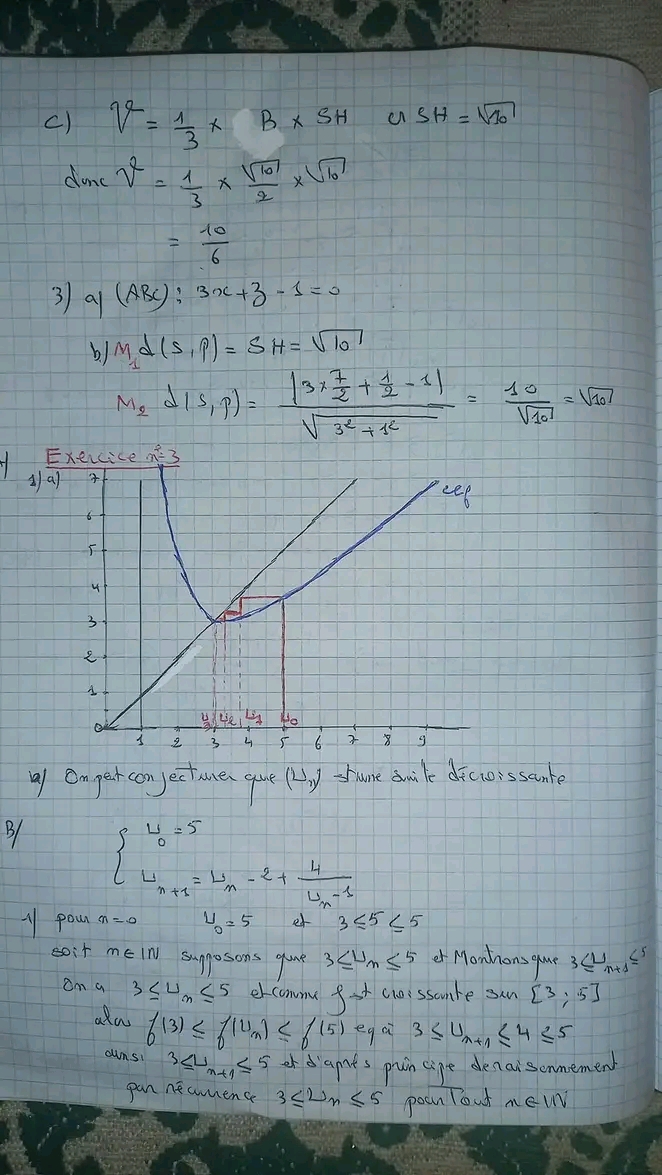 c) V = 1/3 × B × SH et SH = √10
donc V = 1/3 × √10/2 × √10
= 10/6
3) a) (ABC): 3x+z-1=0
b) M1 d(S,P) = SH = √10
M2 d(S,P) = |3×7/2+1/2-1| / √(3²+1²) = 10/√10 = √10
Exercice n°3
1)a)
7
6
5
4
3
2
1
0
Cf
U3 U2 U1 U0
1 2 3 4 5 6 7 8 9
b) On peut conjecturer que (Un) est une suite décroissante
B/
{ U0 = 5
Un+1 = Un - 2 + 4/(Un-1)
1) pour n=0 U0=5 et 3≤5≤5
soit n∈IN supposons que 3≤Un≤5 et Montrons que 3≤Un+1≤5
On a 3≤Un≤5 et comme f est croissante sur [3;5]
alors f(3) ≤ f(Un) ≤ f(5) eq à 3≤Un+1≤4≤5
ainsi 3≤Un+1≤5 et d'aprés principe de raisonnement
par récurrence 3≤Un≤5 pour Tout n∈IN